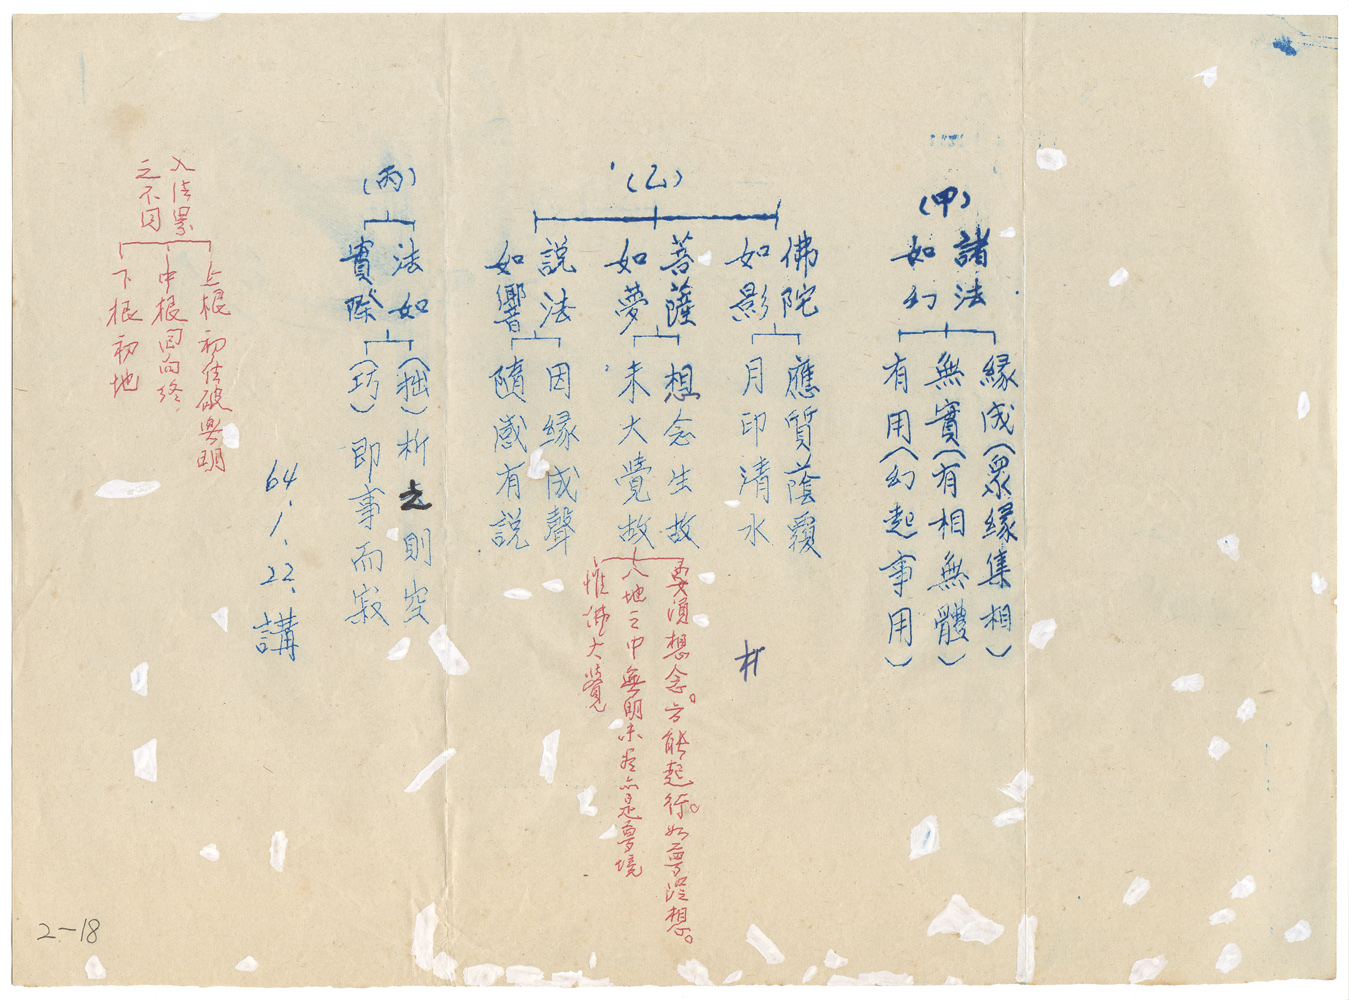 (甲)
諸法
如幻
緣成(眾緣集相)
無實(有相無體)
有用(幻起事用)
(乙)
佛陀
如影
應質蔭覆
月印清水
菩薩
如夢
想念生故
未大覺故
要須想念。方能起行。如夢從想。
八地之中無明未盡亦是夢境
惟佛大覺
說法
如響
因緣成聲
隨感有說
(丙)
法如
實際
(拙)析之則空
(巧)即事而寂
64.1.22.講
入法界
之不同
上根初住破無明
中根回向終
下根初地
2-18